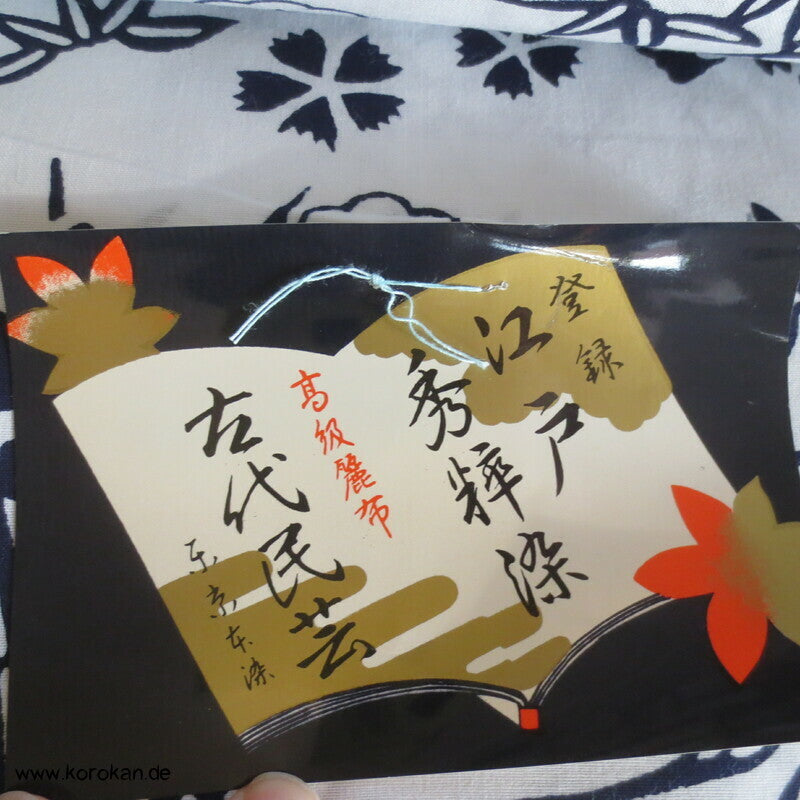 登録
江戸
秀粹染
高級麗布
古代民芸
东京本染
www.korokan.de